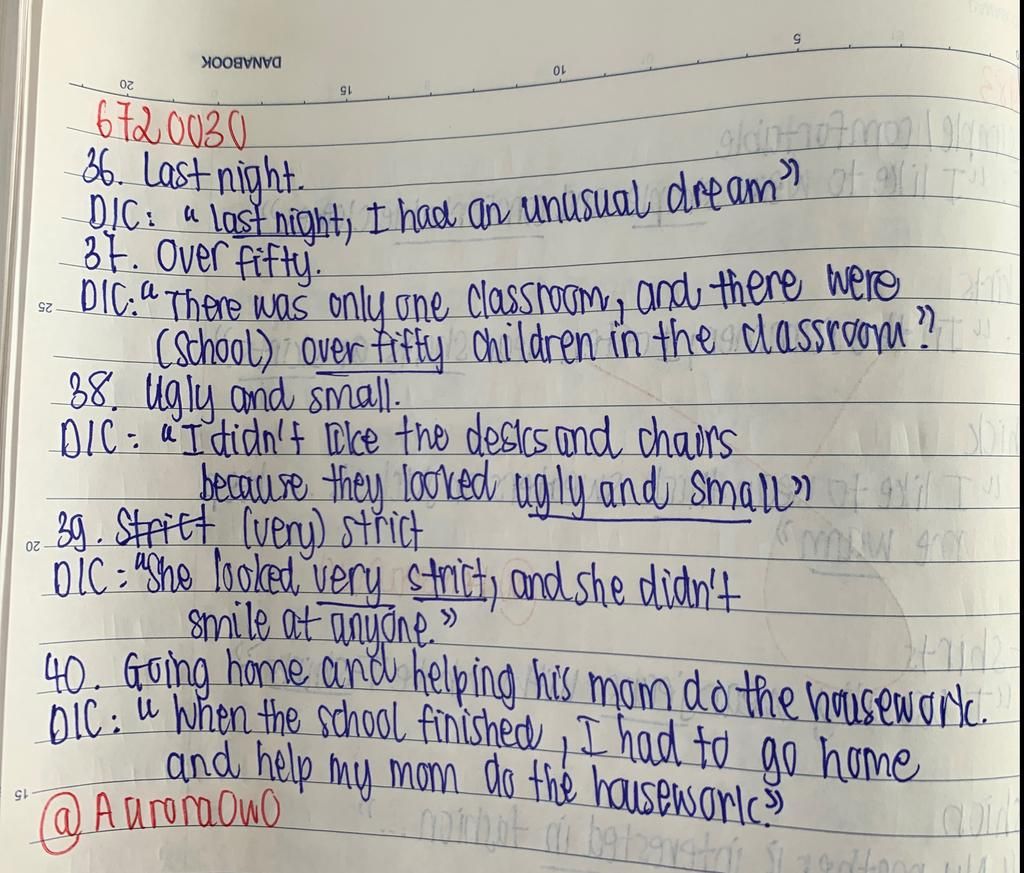 DANABOOK
20 15 10 5
6720030
36. Last night.
DIC: "last night, I had an unusual dream"
37. Over fifty.
25
DIC: "There was only one classroom, and there were
(school) over fifty children in the classroom"
38. Ugly and small.
DIC: "I didn't like the desks and chairs
because they looked ugly and small"
20
39. Strict (very) strict
DIC: "She looked very strict, and she didn't
smile at anyone."
40. Going home and helping his mom do the housework.
DIC: "When the school finished, I had to go home
and help my mom do the housework."
15
@AuroraOwO